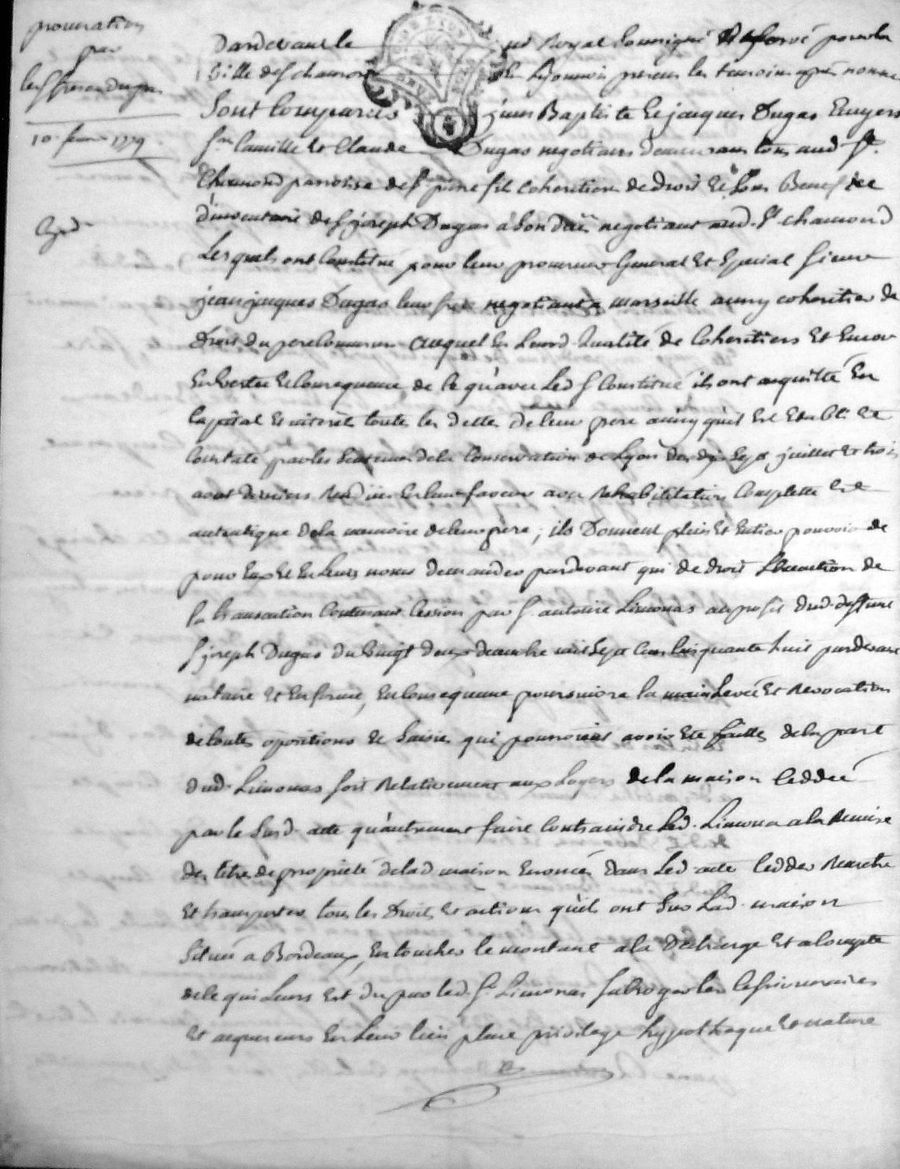 procuration
par
les freres dugas
10 fevrier 1779
Pardevant le no[taire] Royal soussigné Reservé pour la
Ville de St chamond en Lyonnois presens les temoins après nommés
Sont Comparus jean Baptiste et jacques Dugas Ecuyers
Srs Camille et Claude Dugas negotians demeurans tous aud. St.
Chamond parroisse de St pierre fils Coheritiers de droit et sous Benefice
d'inventaire de Sr joseph Dugas a Son decès negotiant aud. St. chamond
Lesquels ont Constitué pour leur procureur General et Special Sieur
jean jacques Dugas leur frere negotiant a marseille aussy coheritier de
Droit du pere commun auquel En Leurd. Qualité de Coheritiers Et Encor
En Vertu et Consequence de ce qu'avec Led. Sr Constitué ils ont acquitté En
Capital et interet toute les dettes de leur pere ainsy qu'il Est Etabli et
Constaté par les Sentences de la Conservation de Lyon des dix Sept juillet et trois
aout derniers Rendues En leur faveur avec Rehabilitation Complette et
autentique de la memoire de leur pere, ils Donnent plein Et Entier pouvoir de
pour Eux et En Leurs noms demander pardevant qui de droit L'execution de
la transaction Contenant Cession par Sr. antoine Limonas au profit dud. deffunt
Sr joseph Dugas du Vingt deux decembre mil Sept Cens Cinquante huit pardevant
notaire Et En forme, En Consequence poursuivre la main Levée Et Revocation
de toutes opositions et Saisies qui pourroient avoir Eté faittes de la part
dud. Limonas soit Relativement aux Loyers de la maison Ceddée
par le Susd. acte qu'autrement faire Contraindre Led. Limonas a la Remise
des titres de proprieté de lad. maison Enoncés dans Led. acte Cedder Remettre
Et transporter tous les Droits et actions qu'ils ont Sur Lad. maison
Située a Bordeaux, En toucher le montant a la Decharge Et a Compte
de ce qui Leurs Est du par led. Sr. Limonas Subroger les Cessionnaires
Et acquereurs En Leur lieu place privilege hypotheque et nature